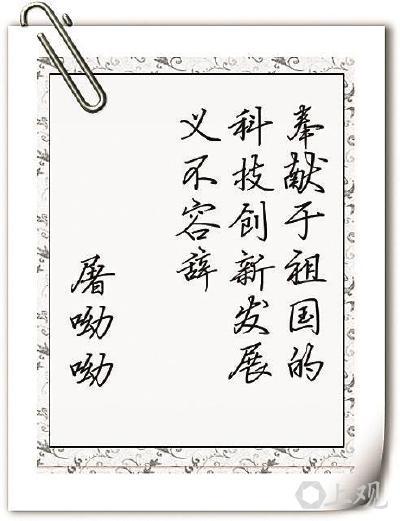 奉献于祖国的
科技创新发展
义不容辞
屠呦呦
上观